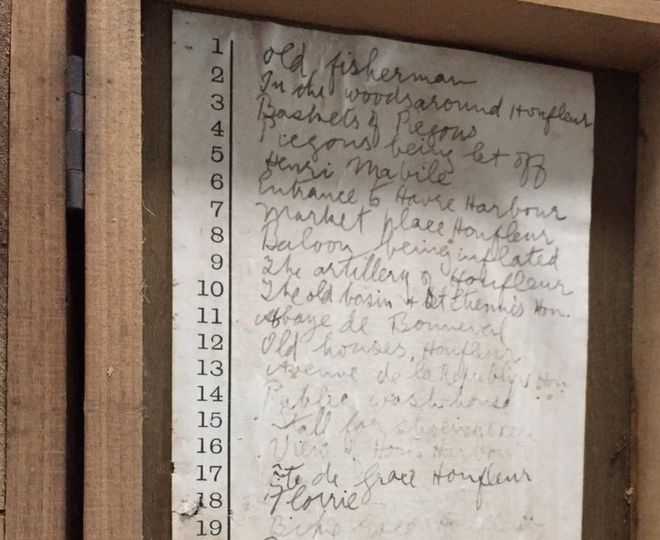 1 Old fisherman
2 In the woods around Honfleur
3 Baskets of Piegons
4 Piegons being let off
5 Henri Mabile
6 Entrance to Havre Harbour
7 Market place Honfleur
8 Baloon being inflated
9 The artillery of Honfleur
10 The old basin + St Etienne's Hon.
11 Abbaye de Bonneval
12 Old houses, Honfleur
13 Avenue de la Republique Hon
14 Public wash-house
15 Stall for
16 View of Hon. Harbour
17 Côte de Grace Honfleur
18 Florrie
19 Bike race Honfleur